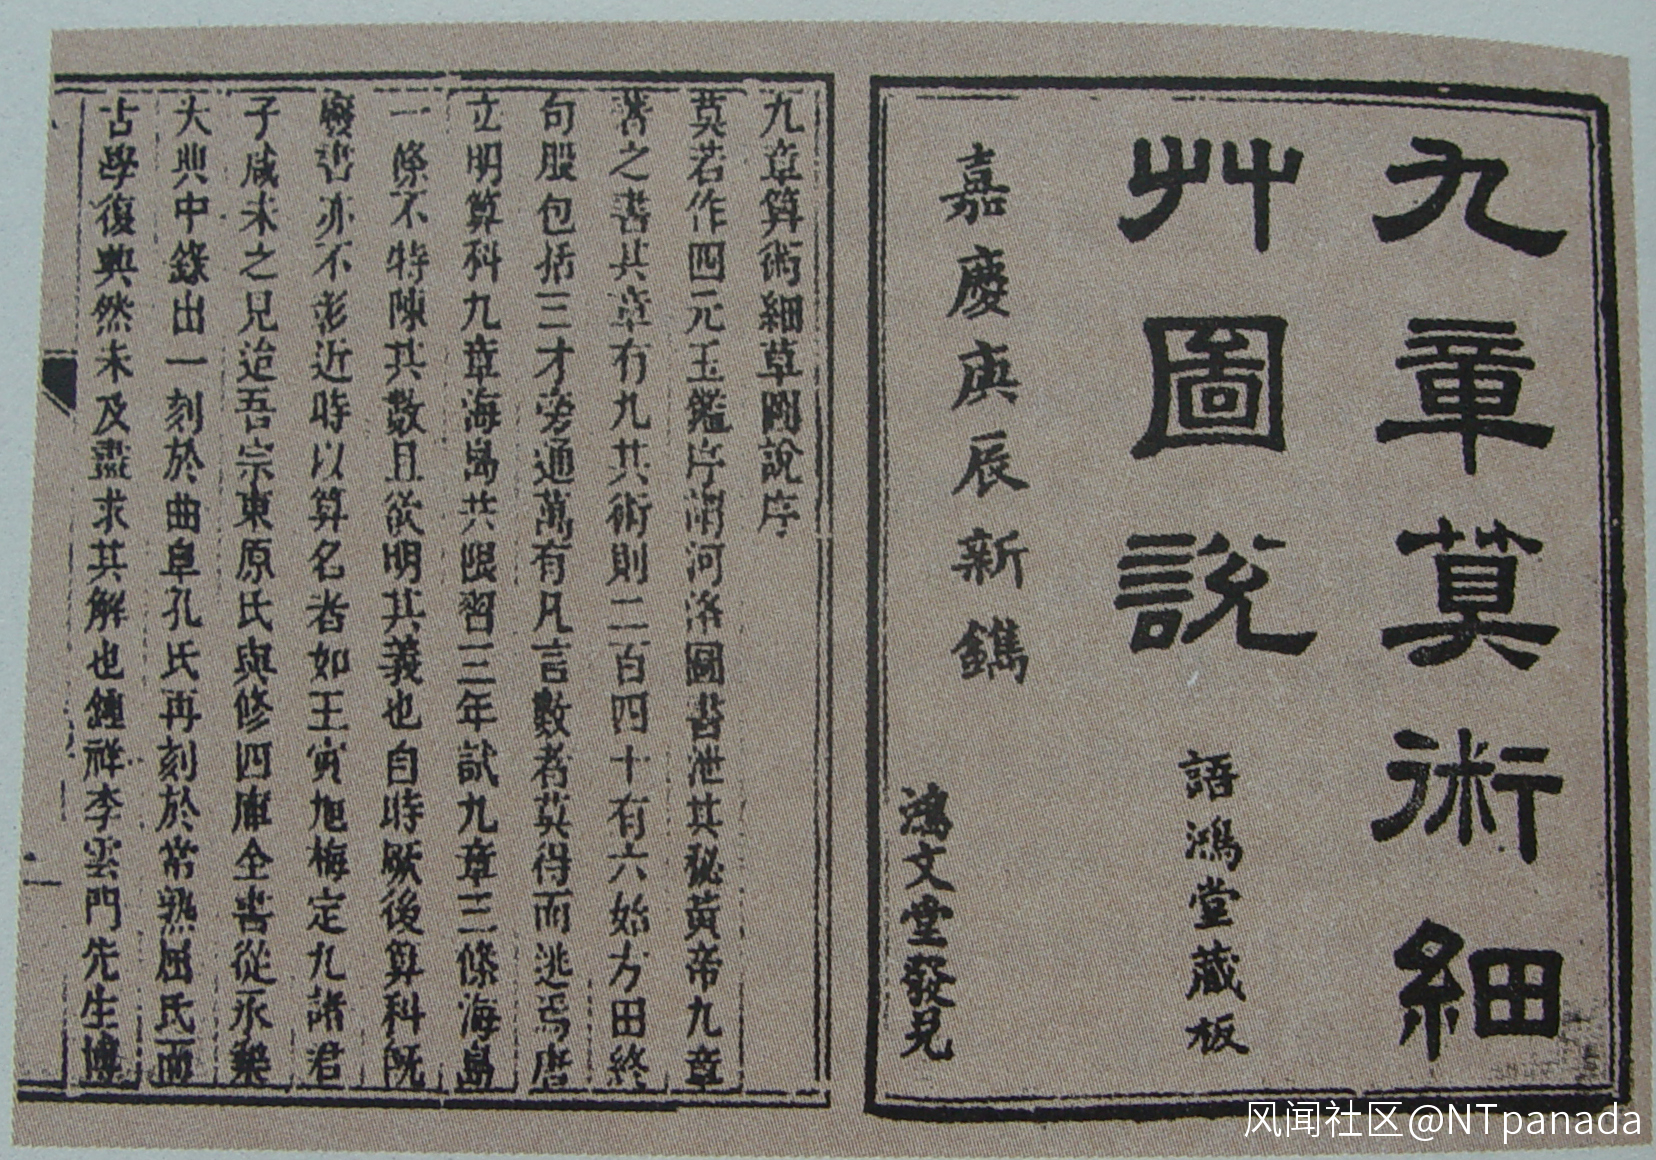 九章算術細
艸圖說
語鴻堂藏板
嘉慶庚辰新鐫
鴻文堂發兌
九章算術細草圖說序
莫若作四元玉鑑序謂河洛圖書泄其秘黃帝九章
著之書其章有九其術則二百四十有六始方田終
句股包括三才旁通萬有凡言數者莫得而逃焉唐
立明算科九章海島共限習三年試九章三條海島
一條不特陳其數且欲明其義也自時厥後算科既
廢書亦不彰近時以算名者如王寅旭梅定九諸君
子咸未之見迨吾宗東原氏與修四庫全書從永樂
大典中錄出一刻於曲阜孔氏再刻於常熟屈氏而
古學復興然未及盡求其解也鍾祥李雲門先生博
风闻社区@NTpanada